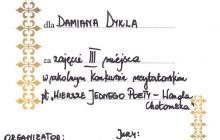 dla DAMIANA DYKLA
za zajęcie III miejsca
w szkolnym konkursie recytatorskim
pt. „WIERSZE JEDNEGO POETY - Wanda
Chotomska”
ORGANIZATOR: JURY: